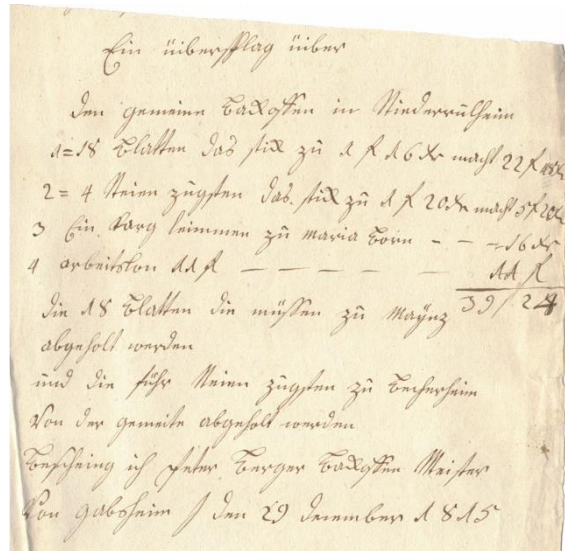 Ein überschlag über
den gemeine Backoffen in
1=18 Blatten das stick zu 1 f 16 xr macht 22 f 48 xr
2 = 4 Neien das stick zu 1 f 20 xr macht 5 f 20 xr
3 Ein leimmen zu maria born - - - 16 xr
4 arbeitslon 11 f — — — — — 11 f
39 / 24
die 18 Blatten die müssen zu Maynz
abgeholt werden
und die führ Neien zu Becherheim
Von der gemeite abgeholt werden
Bescheing ich Peter Berger Backoffen Meister
Von gabsheim / den 29 december 1815